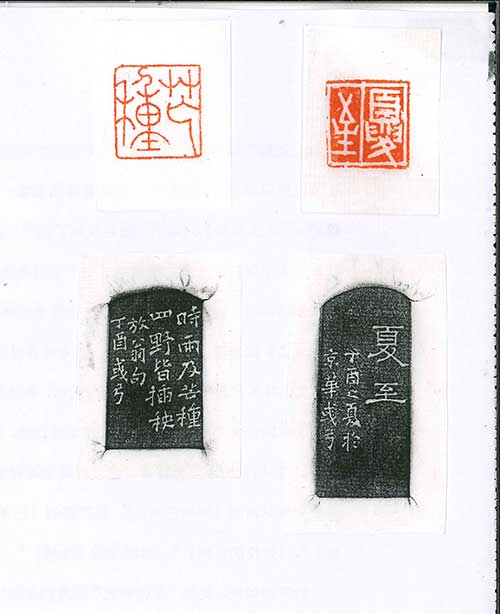 芒種
夏至
時雨及芒種
四野皆插秧
放翁句
丁酉弓
夏至
丁酉之夏於
京華弓